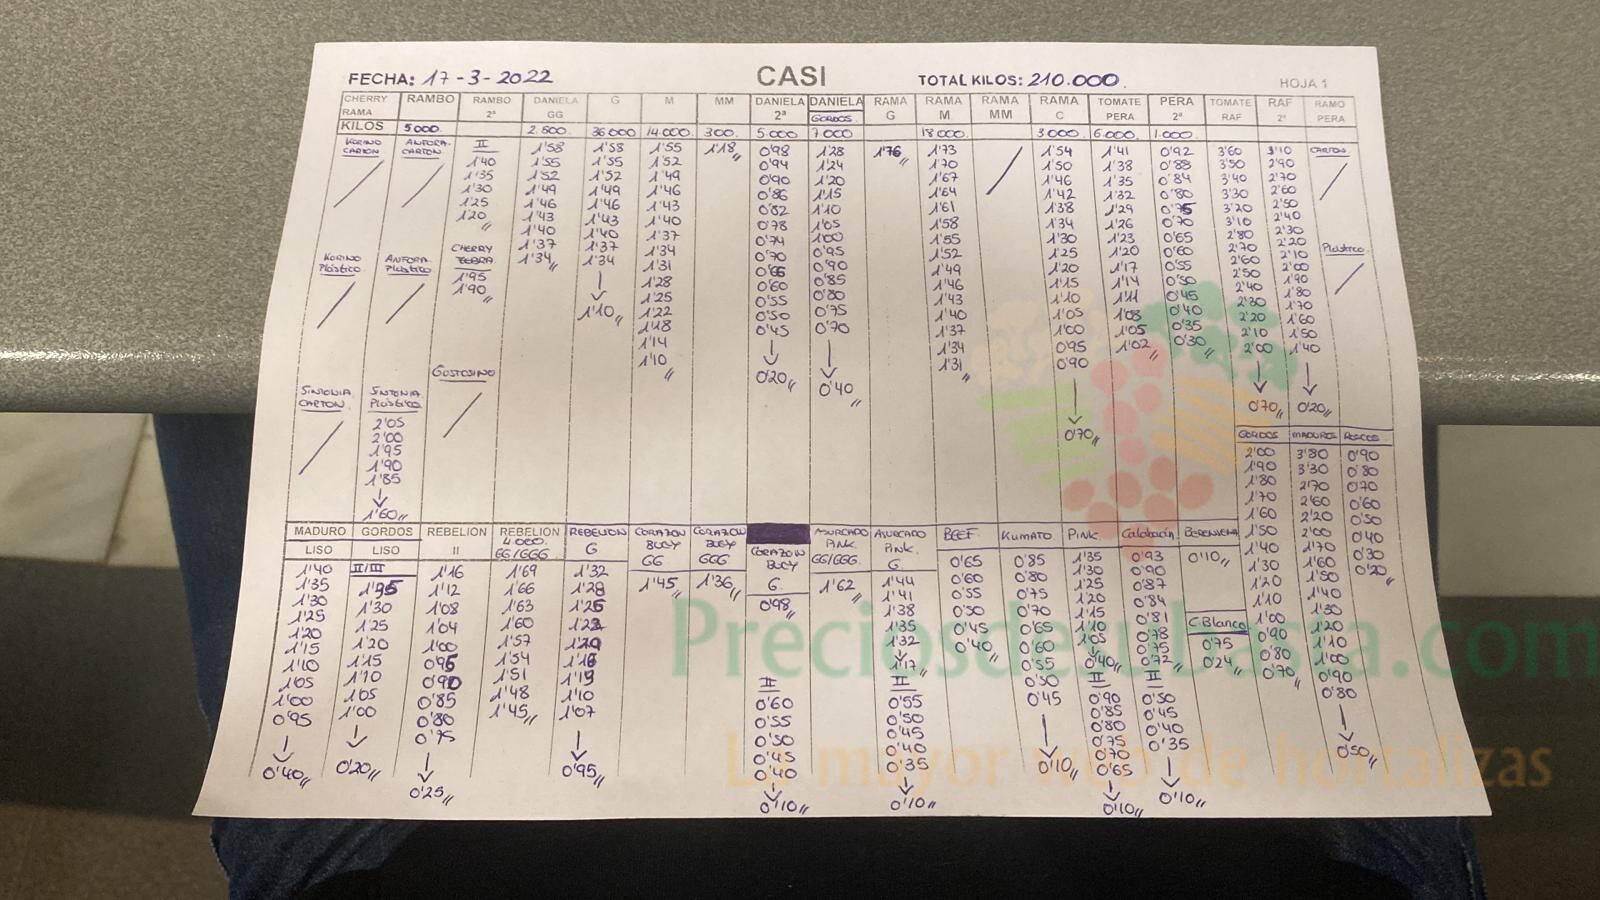 FECHA: 17-3-2022 CASI TOTAL KILOS: 210.000 HOJA 1
CHERRY RAMA RAMBO RAMBO 2ª DANIELA GG G M MM DANIELA 2ª DANIELA GORDOS RAMA G RAMA M RAMA MM RAMA C TOMATE PERA PERA 2ª TOMATE RAF RAF 2ª RAMO PERA
KILOS 5000 2.500 36000 14.000 300 5.000 7.000 18.000 3.000 6.000 1.000
KORINO CARTON
ANFORA CARTON
KORINO PLÁSTICO
ANFORA PLÁSTICO
SINFONIA CARTON
SINTONIA PLÁSTICO
2'05
2'00
1'95
1'90
1'85
1'60
II
1'40
1'35
1'30
1'25
1'20
CHERRY
1'95
1'90
GUSTOSINO
1'58
1'55
1'52
1'49
1'46
1'43
1'40
1'37
1'34
1'58
1'55
1'52
1'49
1'46
1'43
1'40
1'37
1'34
1'10
1'55
1'52
1'49
1'46
1'43
1'40
1'37
1'34
1'31
1'28
1'25
1'22
1'18
1'14
1'10
1'18
0'98
0'94
0'90
0'86
0'82
0'78
0'74
0'70
0'66
0'60
0'55
0'50
0'45
0'20
1'28
1'24
1'20
1'15
1'10
1'05
1'00
0'95
0'90
0'85
0'80
0'75
0'70
0'40
1'76
1'73
1'70
1'67
1'64
1'61
1'58
1'55
1'52
1'49
1'46
1'43
1'40
1'37
1'34
1'31
1'54
1'50
1'46
1'42
1'38
1'34
1'30
1'25
1'20
1'15
1'10
1'05
1'00
0'95
0'90
0'70
1'41
1'38
1'35
1'32
1'29
1'26
1'23
1'20
1'17
1'14
1'11
1'08
1'05
1'02
0'92
0'88
0'84
0'80
0'75
0'70
0'65
0'60
0'55
0'50
0'45
0'40
0'35
0'30
3'60
3'50
3'40
3'30
3'20
3'10
2'80
2'70
2'60
2'50
2'40
2'30
2'20
2'10
2'00
0'70
3'10
2'90
2'70
2'60
2'50
2'40
2'30
2'20
2'10
2'00
1'90
1'80
1'70
1'60
1'50
1'40
0'20
CARTON
PLÁSTICO
MADURO LISO
1'40
1'35
1'30
1'25
1'20
1'15
1'10
1'05
1'00
0'95
0'40
GORDOS LISO
II/III
1'35
1'30
1'25
1'20
1'15
1'10
1'05
1'00
0'20
REBELION II
1'16
1'12
1'08
1'04
1'00
0'95
0'90
0'85
0'80
0'75
0'25
REBELION 4.000 GG/GGG
1'69
1'66
1'63
1'60
1'57
1'54
1'51
1'48
1'45
REBELION G
1'32
1'28
1'25
1'10
1'07
0'95
CORAZON BUEY GG
1'45
CORAZON BUEY GGG
1'36
CORAZON BUEY G
0'98
II
0'60
0'55
0'50
0'45
0'40
0'10
ASURCADO PINK GG/GGG
1'62
ASURCADO PINK G
1'44
1'41
1'38
1'35
1'32
1'17
II
0'55
0'50
0'45
0'40
0'35
0'10
BEEF
0'65
0'60
0'55
0'50
0'45
0'40
KUMATO
0'85
0'80
0'75
0'70
0'65
0'60
0'55
0'50
0'45
0'10
PINK
1'35
1'30
1'25
1'20
1'15
1'10
1'05
0'40
II
0'90
0'85
0'80
0'75
0'70
0'65
0'10
Calabacín
0'93
0'90
0'87
0'84
0'81
0'78
0'75
0'72
II
0'50
0'45
0'40
0'35
0'10
BERENJENA
0'10
C Blanco
0'75
0'24
GORDOS
2'00
1'90
1'80
1'70
1'60
1'50
1'40
1'30
1'20
1'10
1'00
0'90
0'80
0'70
MADUROS
3'80
3'30
2'70
2'60
2'20
2'00
1'70
1'60
1'50
1'40
1'30
1'20
1'10
1'00
0'90
0'80
0'50
ROSCOS
0'90
0'80
0'70
0'60
0'50
0'40
0'30
0'20
Preciosdesubasta.com
La mayor web de hortalizas